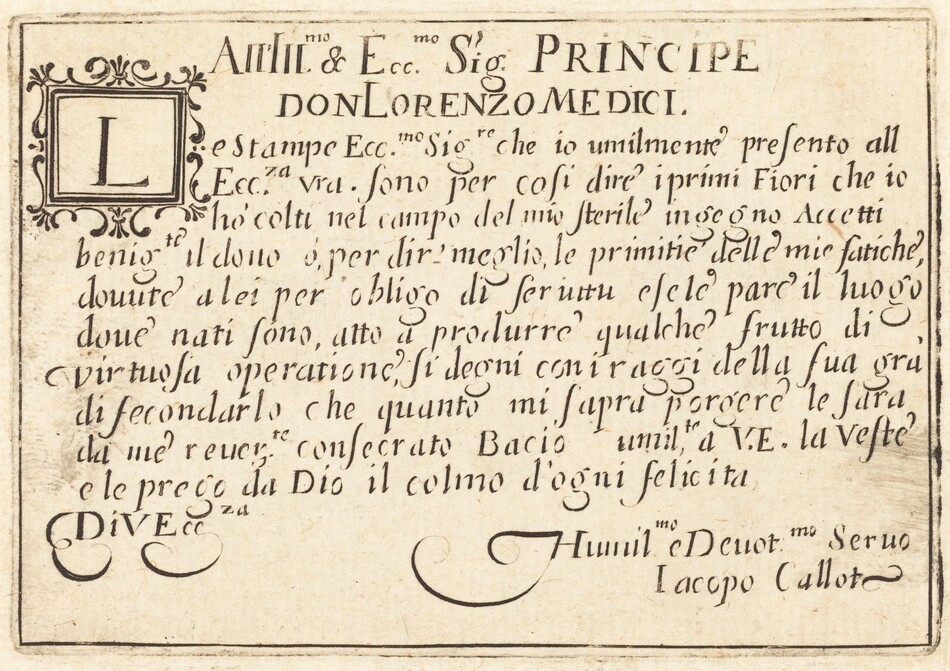 All'Ill.mo & Ecc.mo Sig. PRINCIPE
DON LORENZO MEDICI.
Le Stampe Ecc.mo Sig.re che io umilmente presento all
Ecc.za vra. sono per cosi dire i primi Fiori che io
hò colti nel campo del mio sterile ingegno Accetti
benig.te il dono ò, per dir meglio, le primitie delle mie fatiche,
douute a lei per obligo di seruitu e se le pare il luogo
doue nati sono, atto à produrre qualche frutto di
virtuosa operatione, si degni con i raggi della sua grà
di fecondarlo che quanto mi saprà porgere le sara
da me reuer.te consecrato Bacio umil.te à V.E. la Veste
e le prego da Dio il colmo d'ogni felicita
Di V Ecc.za
Humil.mo e Deuot.mo Seruo
Iacopo Callot